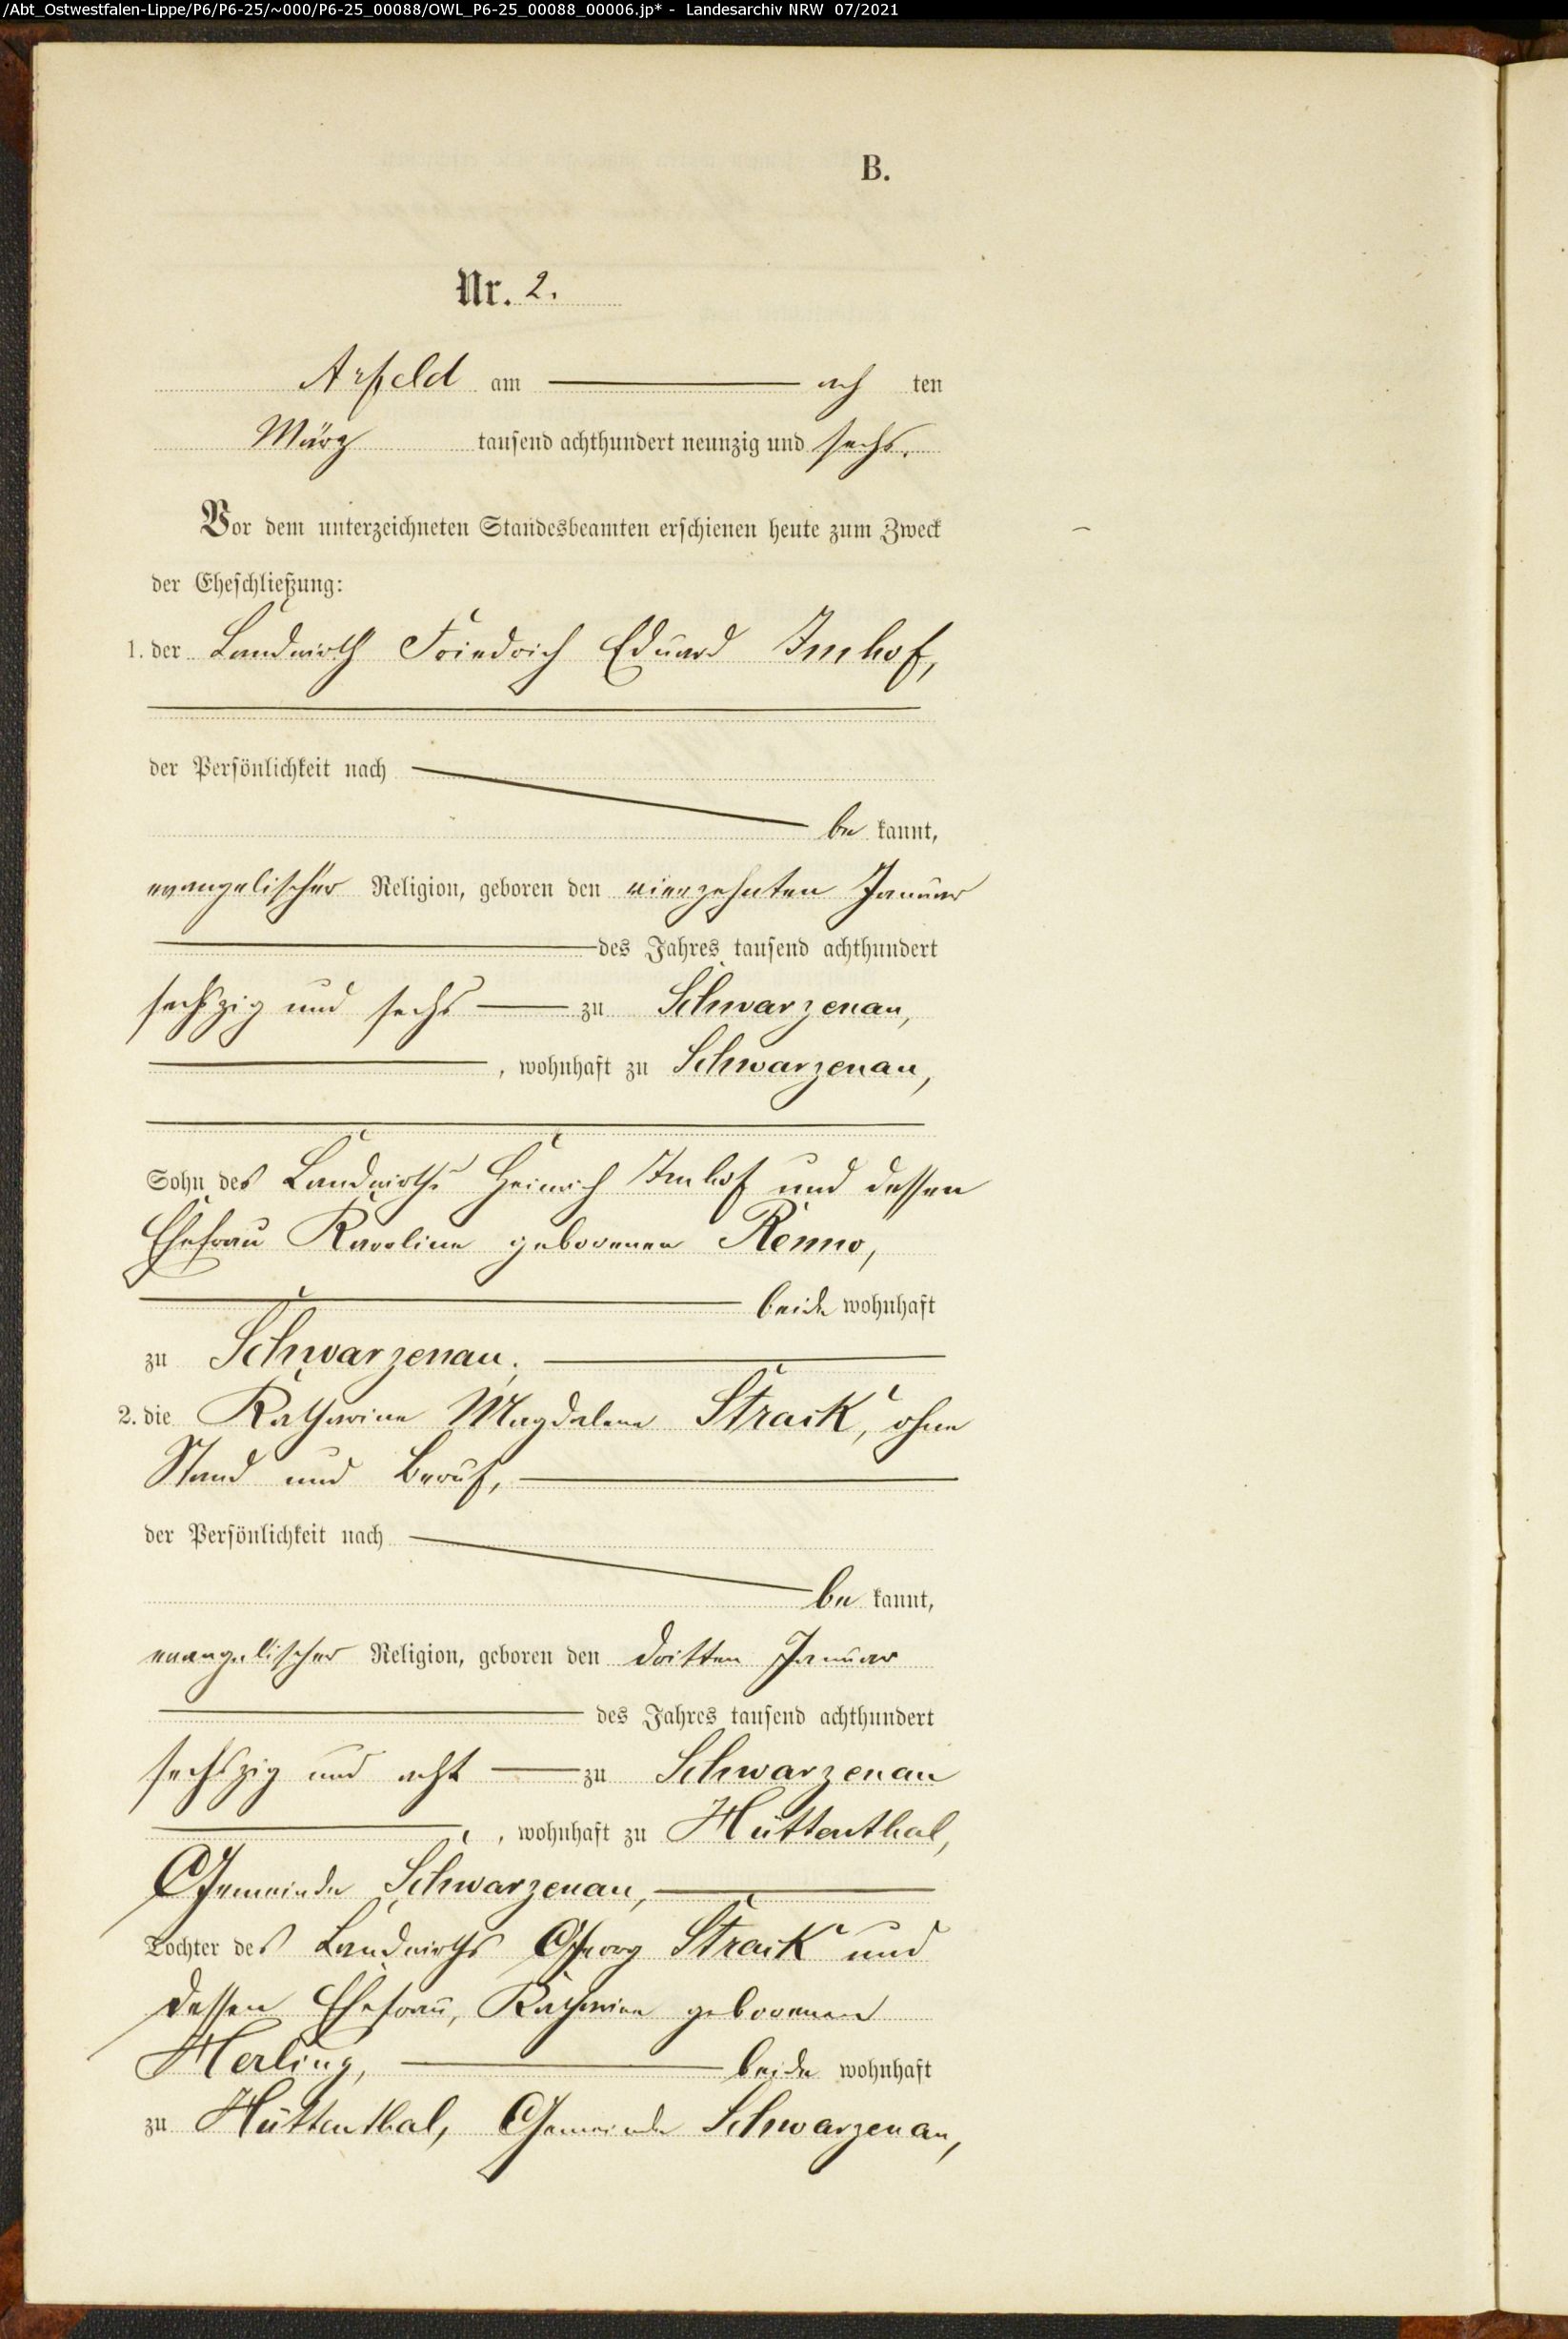 /Abt_Ostwestfalen-Lippe/P6/P6-25/~000/P6-25_00088/OWL_P6-25_00088_00006.jp* - Landesarchiv NRW 07/2021
B.
Nr. 2.
Arfeld am ach ten
März tausend achthundert neunzig und sechs.
Vor dem unterzeichneten Standesbeamten erschienen heute zum Zweck
der Eheschließung:
1. der Landwirth Friedrich Eduard Imhof,
der Persönlichkeit nach
be kannt,
evangelischer Religion, geboren den vierzehnten Januar
des Jahres tausend achthundert
sechszig und sechs zu Schwarzenau,
, wohnhaft zu Schwarzenau,
Sohn des Landwirths Heinrich Imhof und dessen
Ehefrau Karoline geborenen Renno,
beide wohnhaft
zu Schwarzenau.
2. die Katharine Magdalene Strack, ohne
Stand und Beruf,
der Persönlichkeit nach
be kannt,
evangelischer Religion, geboren den dritten Januar
des Jahres tausend achthundert
sechszig und acht zu Schwarzenau
, wohnhaft zu Hüttenthal,
Gemeinde Schwarzenau,
Tochter des Landwirths Georg Strack und
dessen Ehefrau, Katharine geborenen
Herling, beide wohnhaft
zu Hüttenthal, Gemeinde Schwarzenau,